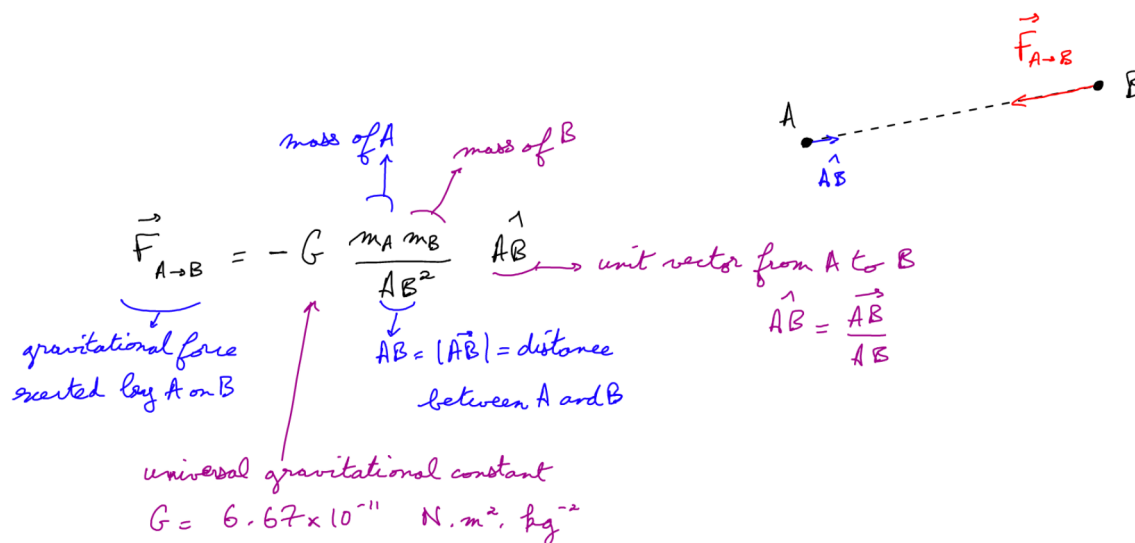 F⃗_A→B
A
B
ÂB
mass of A
mass of B
F⃗_A→B = - G m_A m_B / AB² ÂB
unit vector from A to B
ÂB = A⃗B / AB
gravitational force
exerted by A on B
AB = |A⃗B| = distance
between A and B
universal gravitational constant
G = 6.67 × 10⁻¹¹ N.m².kg⁻²